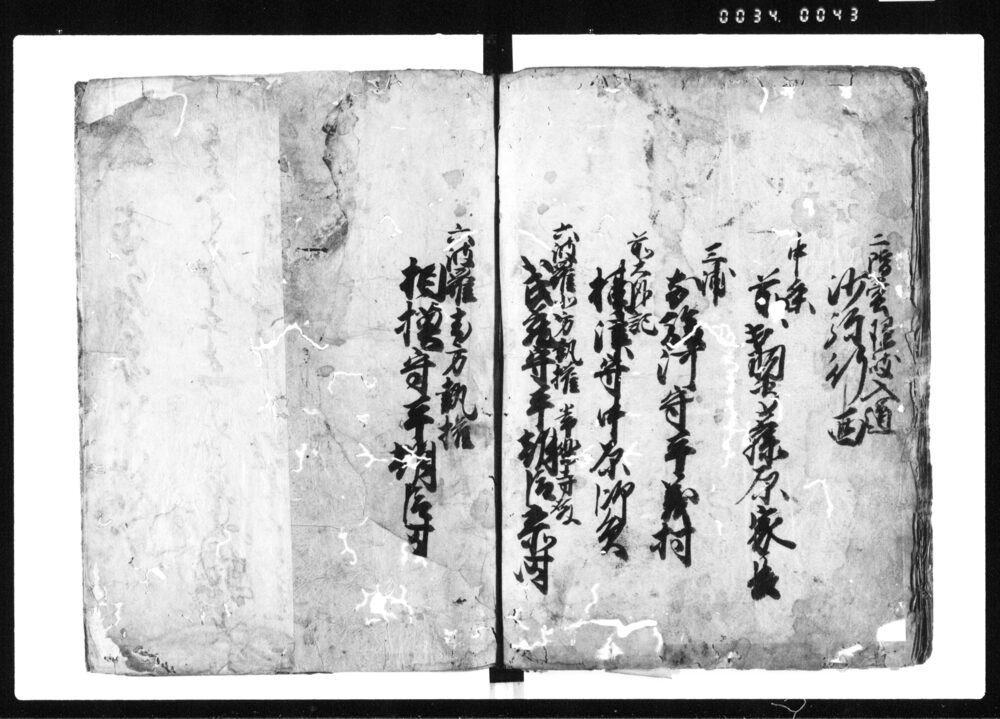 0034. 0043
二階堂隠岐入道
沙弥行西
中条
前出羽守藤原家長
三浦
前駿河守平義村
前大外記
摂津守中原師員
六波羅北方執権 常楽寺殿
武蔵守平朝臣泰時
六波羅南方執権
相摸守平朝臣時